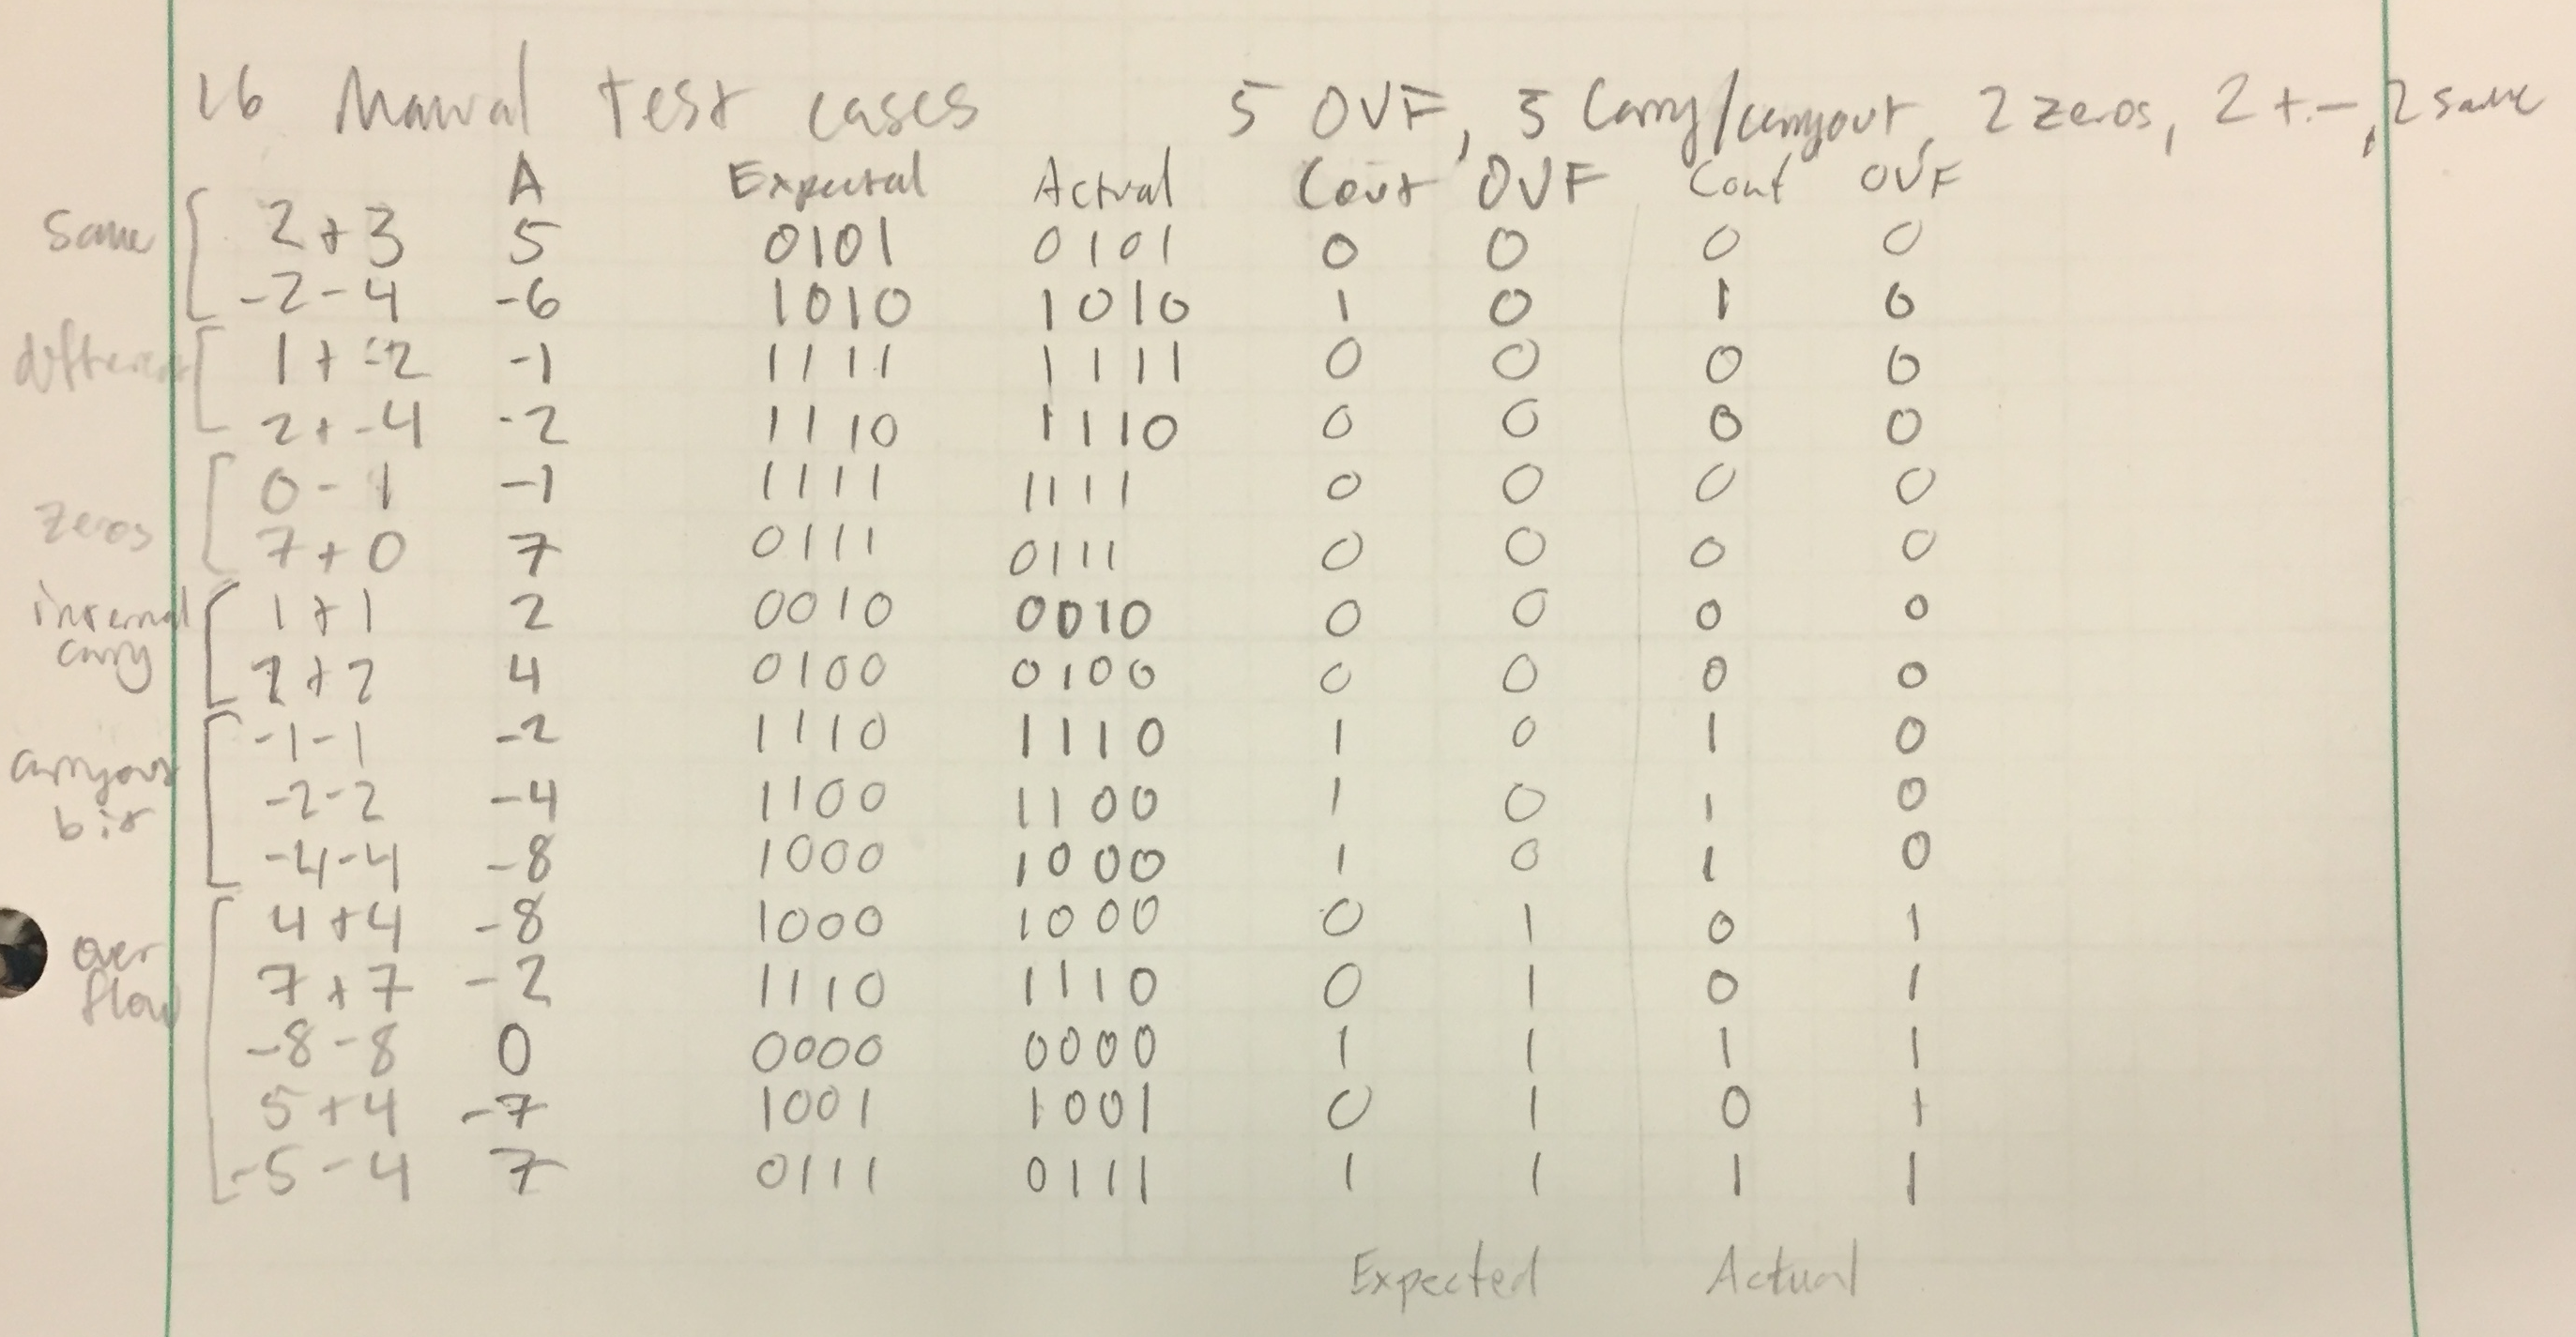 16 Manual test cases 5 OVF, 5 Carry/carryout, 2 zeros, 2 +-, 2 same
A Expected Actual Cout OVF Cout OVF
same 2+3 5 0101 0101 0 0 0 0
-2-4 -6 1010 1010 1 0 1 0
different 1+-2 -1 1111 1111 0 0 0 0
2+-4 -2 1110 1110 0 0 0 0
zeros 0-1 -1 1111 1111 0 0 0 0
7+0 7 0111 0111 0 0 0 0
internal carry 1+1 2 0010 0010 0 0 0 0
2+2 4 0100 0100 0 0 0 0
carryout bit -1-1 -2 1110 1110 1 0 1 0
-2-2 -4 1100 1100 1 0 1 0
-4-4 -8 1000 1000 1 0 1 0
over flow 4+4 -8 1000 1000 0 1 0 1
7+7 -2 1110 1110 0 1 0 1
-8-8 0 0000 0000 1 1 1 1
5+4 -7 1001 1001 0 1 0 1
-5-4 7 0111 0111 1 1 1 1
Expected Actual